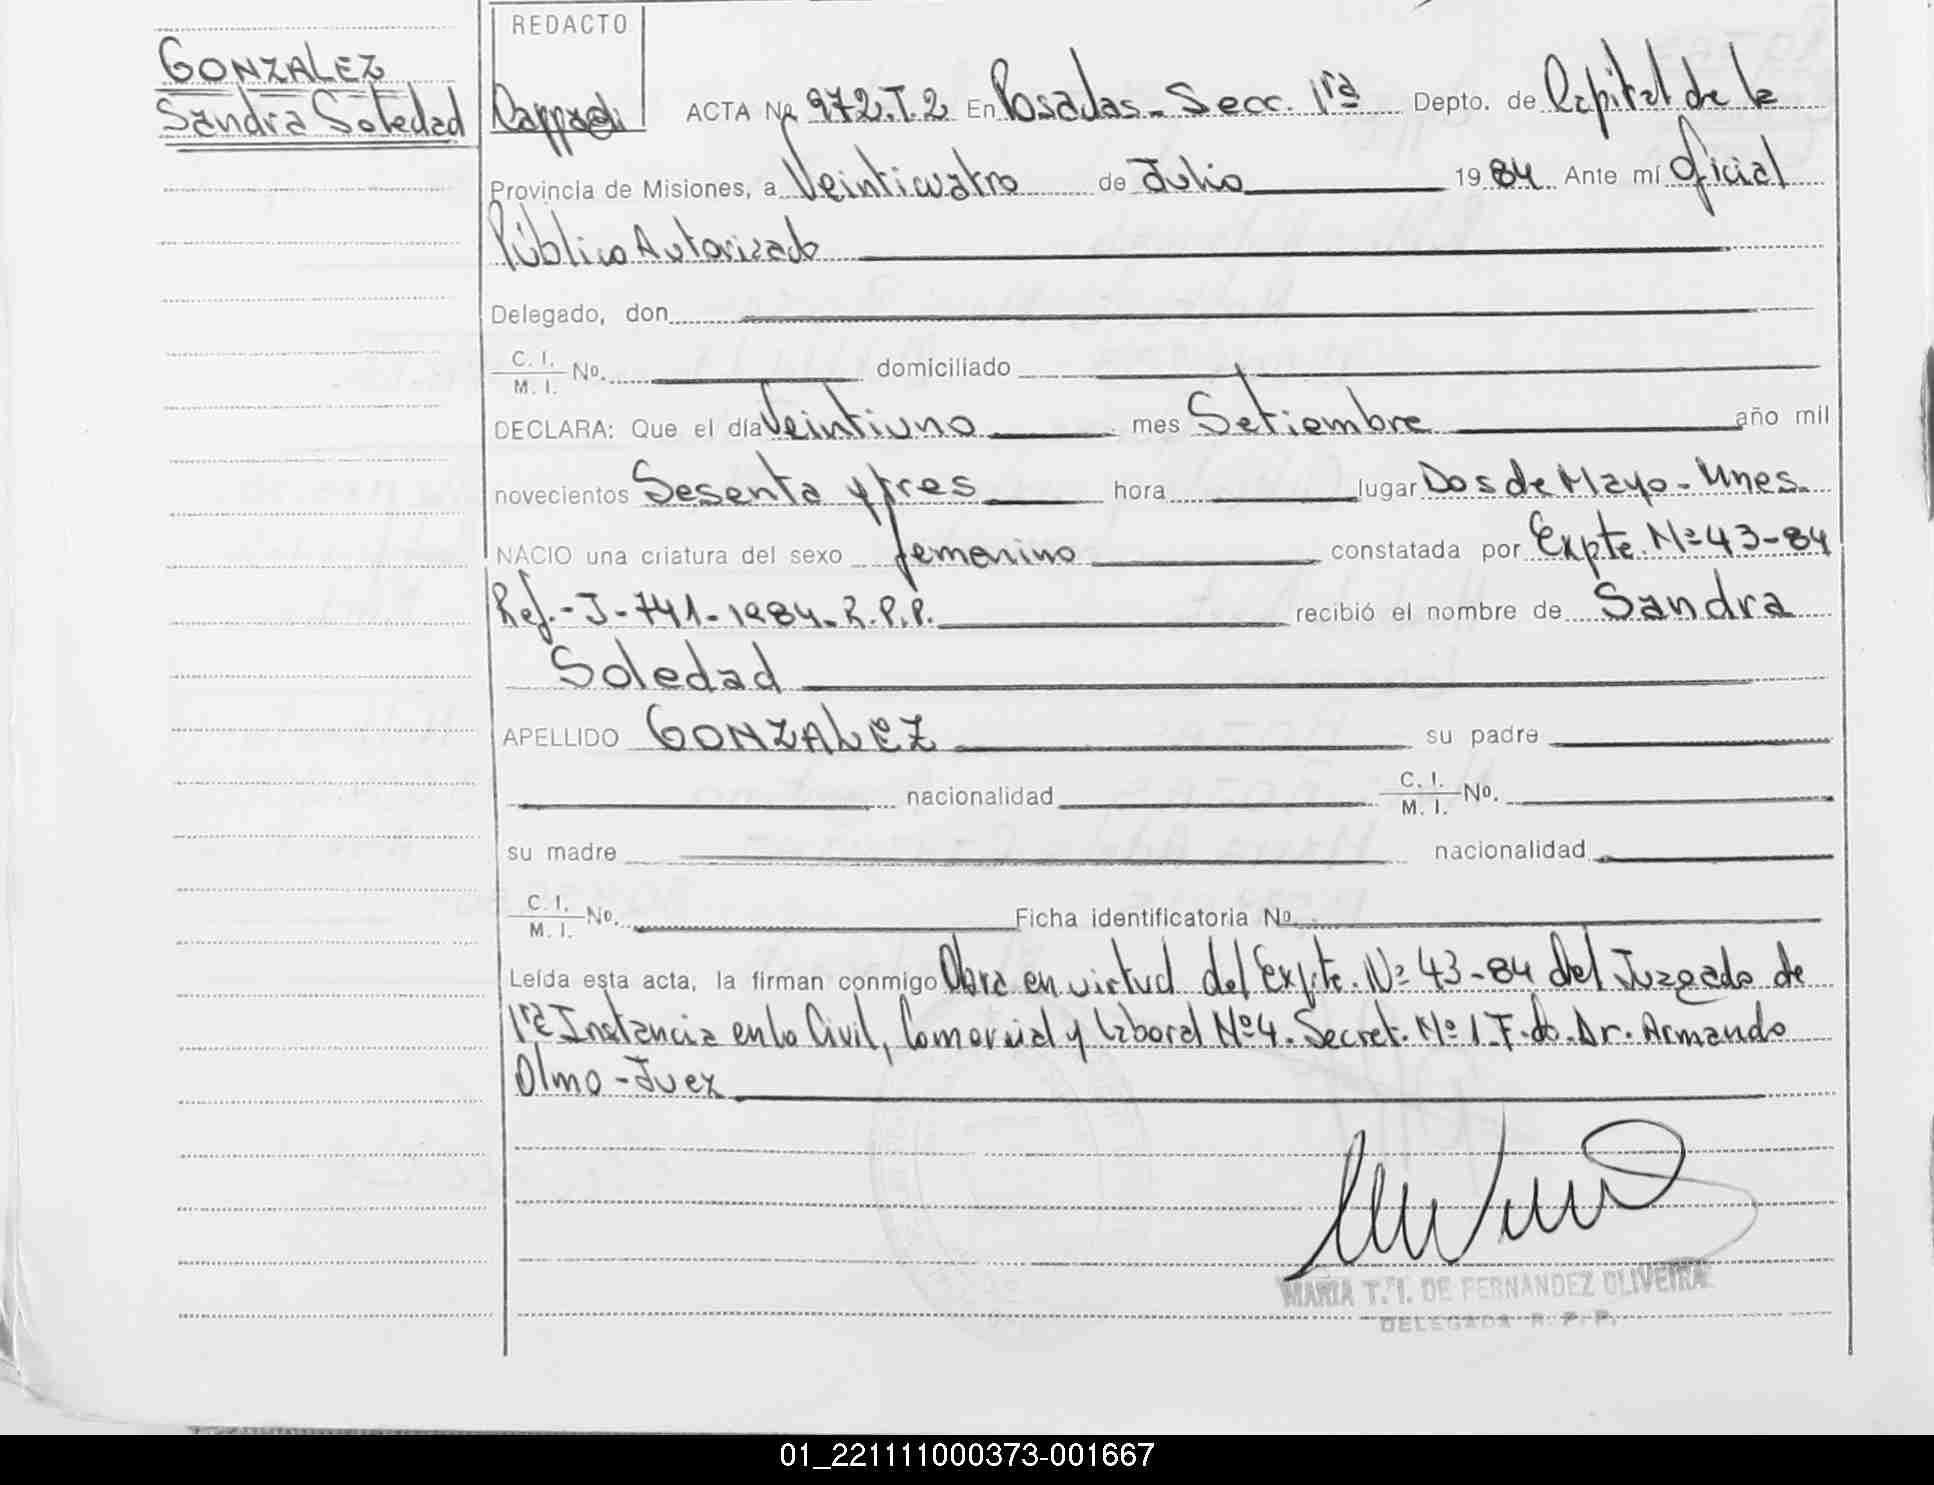 GONZALEZ
Sandra Soledad
REDACTO
ACTA Nº 972.T.2 En Posadas - Secc. 1ra Depto. de Capital de la
Provincia de Misiones, a Veinticuatro de Julio 1984 Ante mí Oficial
Público Autorizado
Delegado, don
C. I.
M. I. Nº. domiciliado
DECLARA: Que el día Veintiuno mes Setiembre año mil
novecientos Sesenta y tres hora lugar Dos de Mayo - Mnes.
NACIO una criatura del sexo femenino constatada por Expte. Nº 43-84
Ref.- J-741-1984-R.P.P. recibió el nombre de Sandra
Soledad
APELLIDO GONZALEZ su padre
nacionalidad C. I.
M. I. Nº.
su madre nacionalidad
C. I.
M. I. Nº. Ficha identificatoria Nº
Leída esta acta, la firman conmigo Obra en virtud del Expte. Nº 43-84 del Juzgado de
1ra Instancia en lo Civil, Comercial y Laboral Nº4. Secret. Nº 1 F.do. Dr. Armando
Olmo - Juez
MARIA T. I. DE FERNANDEZ OLIVEIRA
DELEGADA R. P. P.
01_221111000373-001667